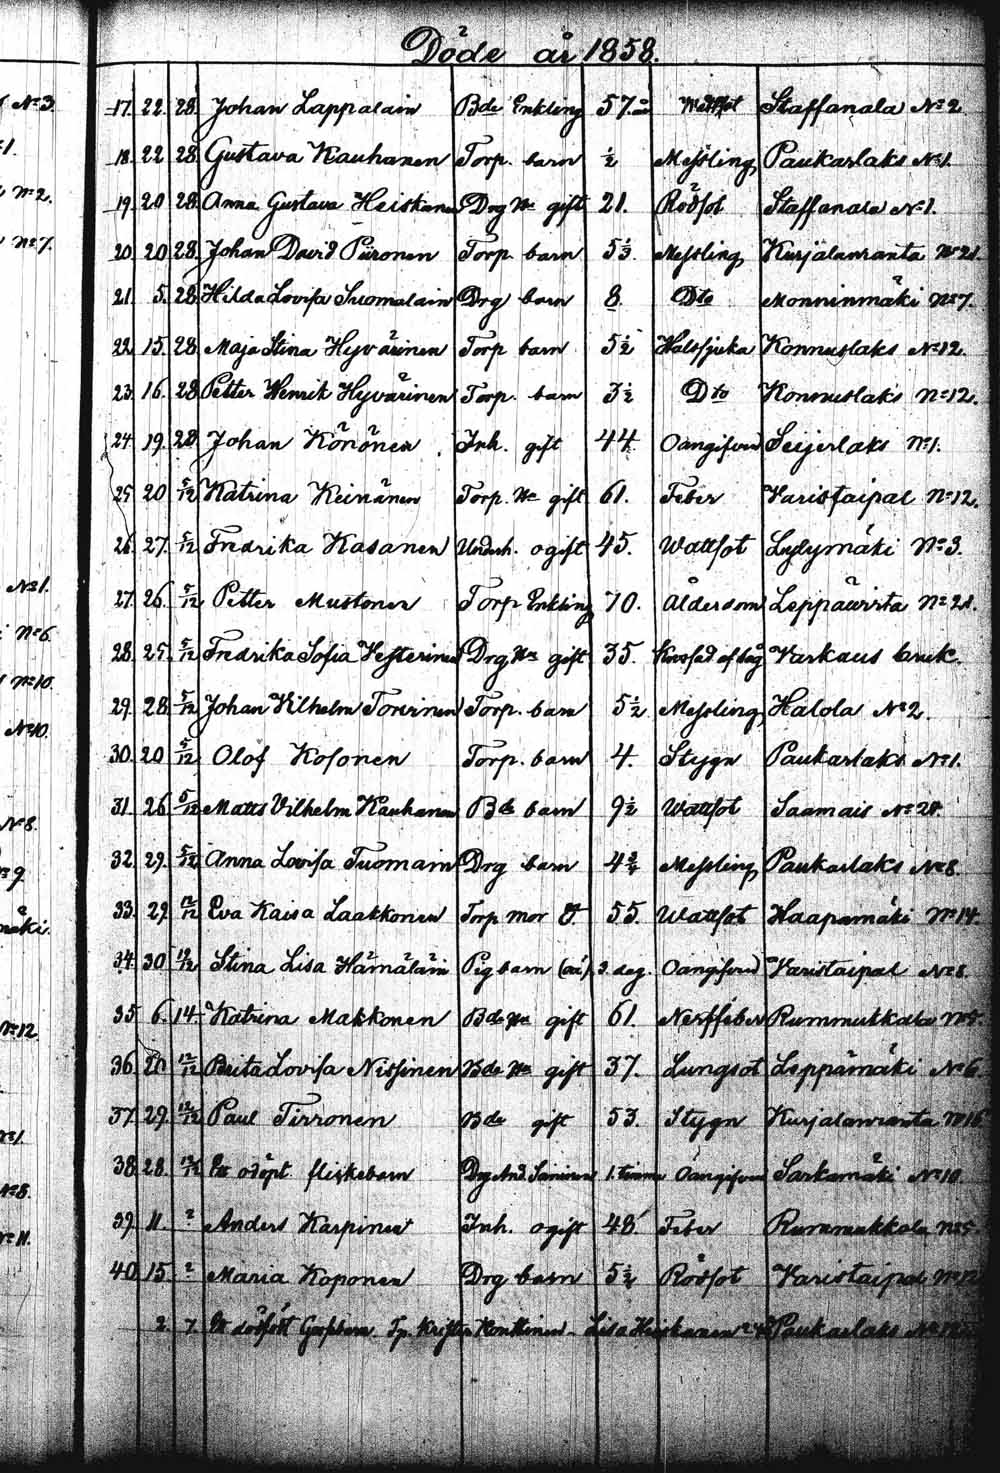 Döde år 1858.
17. 22. 28. Johan Lappalain Bde Enkling 57. Staffanala No 2
18. 22 28 Gustava Kauhanen Torp. barn ½ Messling Paukarlaks No 1.
19. 20 28. Anna Gustava Heiskanen Drg Ha gift 21. Rödsot Staffanala No 1.
20. 20 28. Johan David Piironen Torp. barn 5 Messling Kurjälanranta No 21.
21. 5. 28 Hilda Lovisa Suomalain Drg barn 8 Dto Monninmäki No 7.
22. 15. 28 Maja Stina Hyvärinen Torp barn 5½ Halssjuka Konnuslaks No 12.
23. 16. 28 Petter Henrik Hyvärinen Torp. barn 3½ Dto Konnuslaks No 12.
24. 19. 28 Johan Könönen Inh. gift 44. Oangifven Seijerlaks No 1.
25 20 5/12 Katrina Keinänen Torp. Ha gift 61. Feber Varistaipal No 12.
26. 27. 5/12 Fredrika Kasanen ogift 45. Wattsot Lylymäki No 3.
27. 26. 5/12 Petter Mustonen Torp Enkling 70. Ålderdom Leppäwirta No 21.
28. 25. 5/12 Fredrika Sofia Vesterinen Drg Ha gift 35. af tåg Varkaus bruk.
29. 28. 5/12 Johan Vilhelm Torvinen Torp. barn 5½ Messling Halola No 2.
30. 20 5/12 Olof Kosonen Torp. barn 4. Stygn Paukarlaks No 1.
31. 26 5/12 Matts Vilhelm Kauhanen Bde barn 9½ Wattsot Saamais No 20.
32. 29. 5/12 Anna Lovisa Tuomain Drg barn 4¾ Messling Paukarlaks No 8.
33. 29. 12/12 Eva Kaisa Laakkonen Torp mor 55. Wattsot Haapamäki No 14.
34. 30 12/12 Stina Lisa Hämäläin Pig barn (oä) 3. dag. Oangifven Varistaipal No 8.
35. 6. 14. Katrina Makkonen Bde Ha gift 61. Nerffeber Rummukkala No 5.
36. 20 12/12 Brita Lovisa Nissinen Bde Ha gift 37. Lungsot Leppämäki No 6.
37. 29. 12/12 Paul Tirronen Bde gift 53. Stygn Kurjalanranta No 16
38. 28. 12/12 Ett odöpt flickebarn Drg And. 1. timme Oangifven Sarkamäki No 10.
39. 11. 2 Anders Karpinen Inh. ogift 48 Feber Rummukkala No 5.
40. 15. 2 Maria Koponen Drg barn 5½ Rödsot Varistaipal No 12
2. 7. Ett dödfött Tp. Krister Konttinen - Lisa Heiskanen Paukarlaks
No 3.
No 2.
No 7.
No 1.
No 6.
No 10.
No 10.
No 8.
No 12
No 8.
No 11.